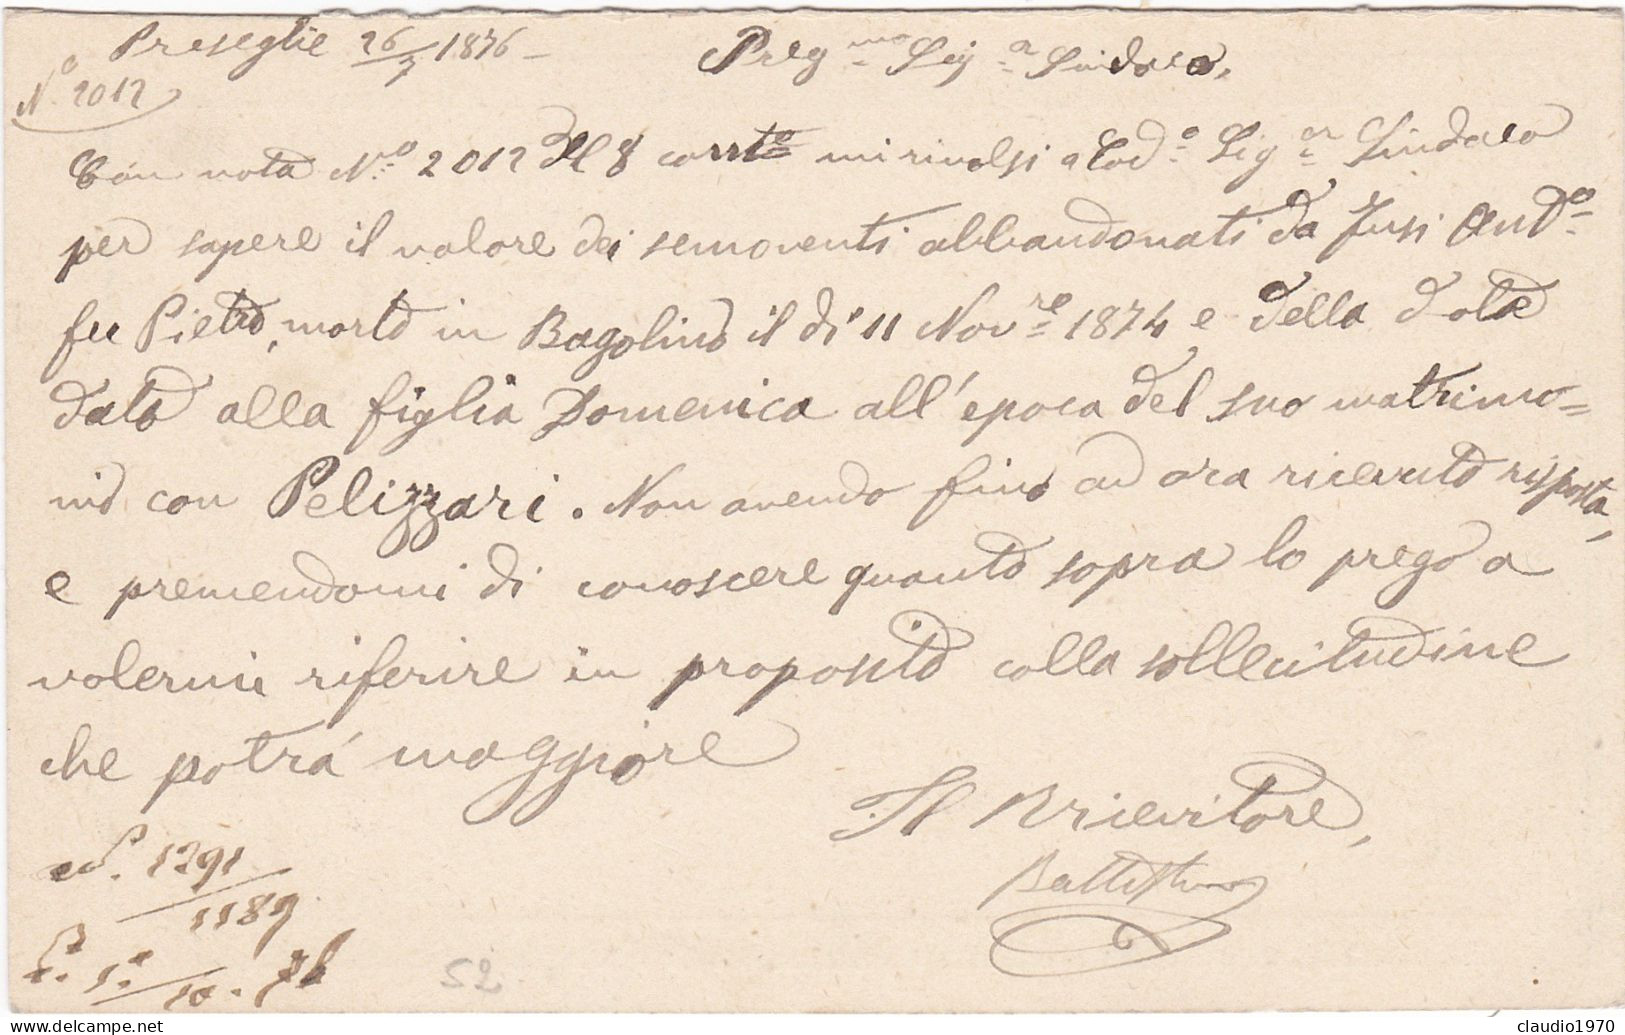 Preseglie 26/7 1876 -
N.o 2012
Preg.mo Sig.r Sindaco,
Con nota N.o 2012 del 8 corrte mi rivolsi a Cod.o Sig.r Sindaco
per sapere il valore dei semoventi abbandonati da Fusi And.o
fu Pietro, morto in Bagolino il dì 11 Nov.re 1874 e della dote
data alla figlia Domenica all'epoca del suo matrimo=
nio con Pelizzari. Non avendo fino ad ora ricevuto risposta,
e premendomi di conoscere quanto sopra lo prego a
volermi riferire in proposito colla sollecitudine
che potrá maggiore
Il Ricevitore,
1291
1189
1.o
10. 76
52
claudio1970